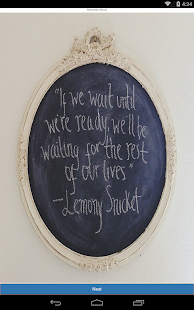 4:34
"If we wait until
we're ready, we'll be
waiting for the rest
of our lives"
-Lemony Snicket
Next